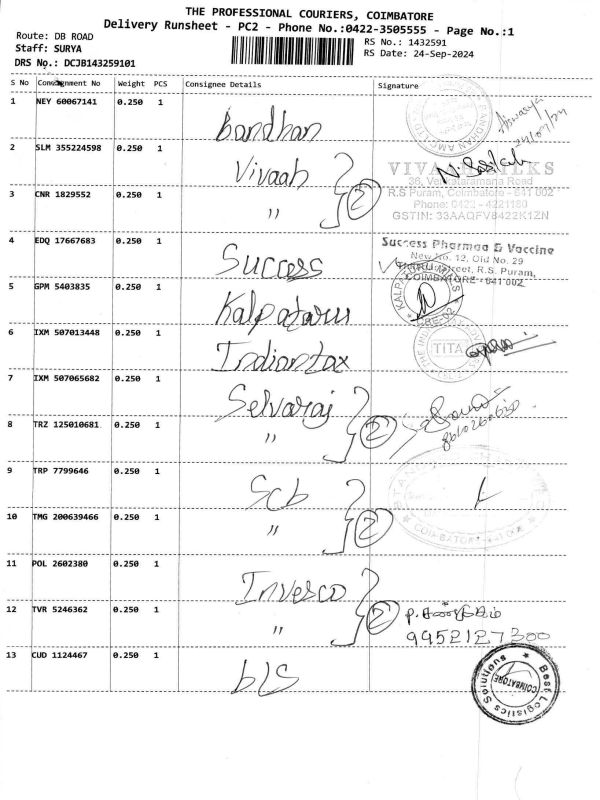 THE PROFESSIONAL COURIERS, COIMBATORE
Delivery Runsheet - PC2 - Phone No.:0422-3505555 - Page No.:1
Route: DB ROAD
RS No.: 1432591
Staff: SURYA
RS Date: 24-Sep-2024
DRS No.: DCJB143259101
S No Consignment No Weight PCS Consignee Details Signature
1 NEY 60067141 0.250 1 Bandhan
2 SLM 355224598 0.250 1 Vivaah
VIVAAH SILKS
36, Venkataramana Road
R.S Puram, Coimbatore - 641 002
Phone: 0422 - 4221180
GSTIN: 33AAQFV8422K1ZN
3 CNR 1829552 0.250 1 〃 2
4 EDQ 17667683 0.250 1 Success
Success Pharmaa & Vaccine
New No. 12, Old No. 29
Street, R.S. Puram,
COIMBATORE - 641 002
5 GPM 5403835 0.250 1 Kalpataru
6 IXM 507013448 0.250 1 Indiantax
TITA
7 IXM 507065682 0.250 1 Selvaraj
8 TRZ 125010681 0.250 1 〃 2
9 TRP 7799646 0.250 1 Scb
10 TMG 200639466 0.250 1 〃 2
COIMBATORE
11 POL 2602380 0.250 1 Invesco
12 TVR 5246362 0.250 1 〃 2
9952127300
13 CUD 1124467 0.250 1 bLS
Best Logistics Solutions
COIMBATORE